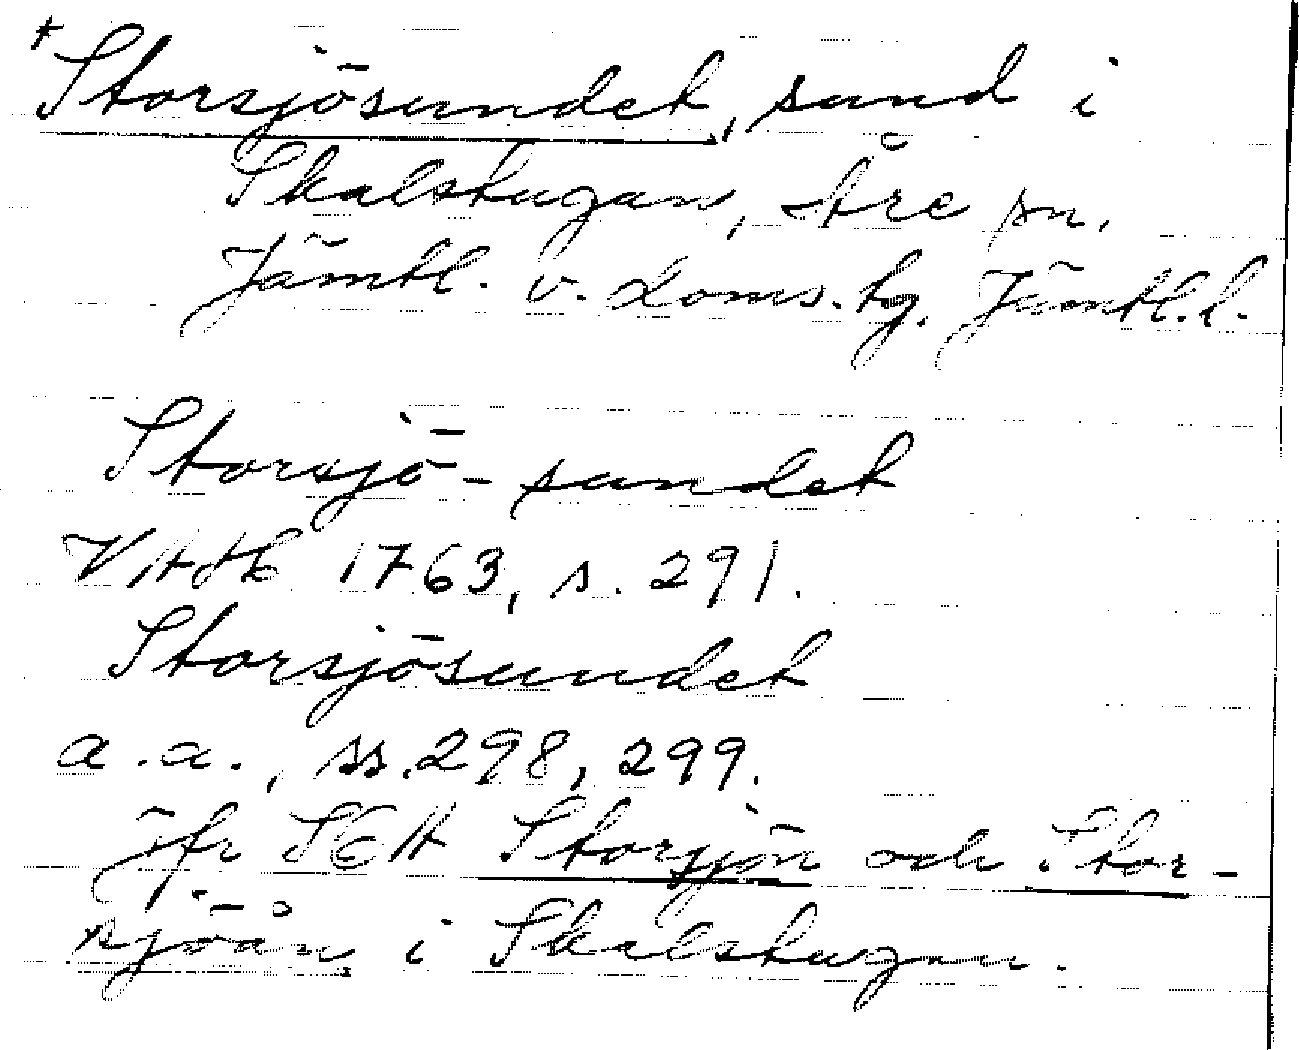 + Storsjösundet, sund i
Skalstugan, Åre sn.
Jämtl. v. doms. hg. Jämtl. l.
Storsjö-sundet
VHHb 1763, s. 291.
Storsjösundet
a.a., ss. 298, 299.
Jfr SEH Storsjön och Stor-
sjöån i Skalstugan.